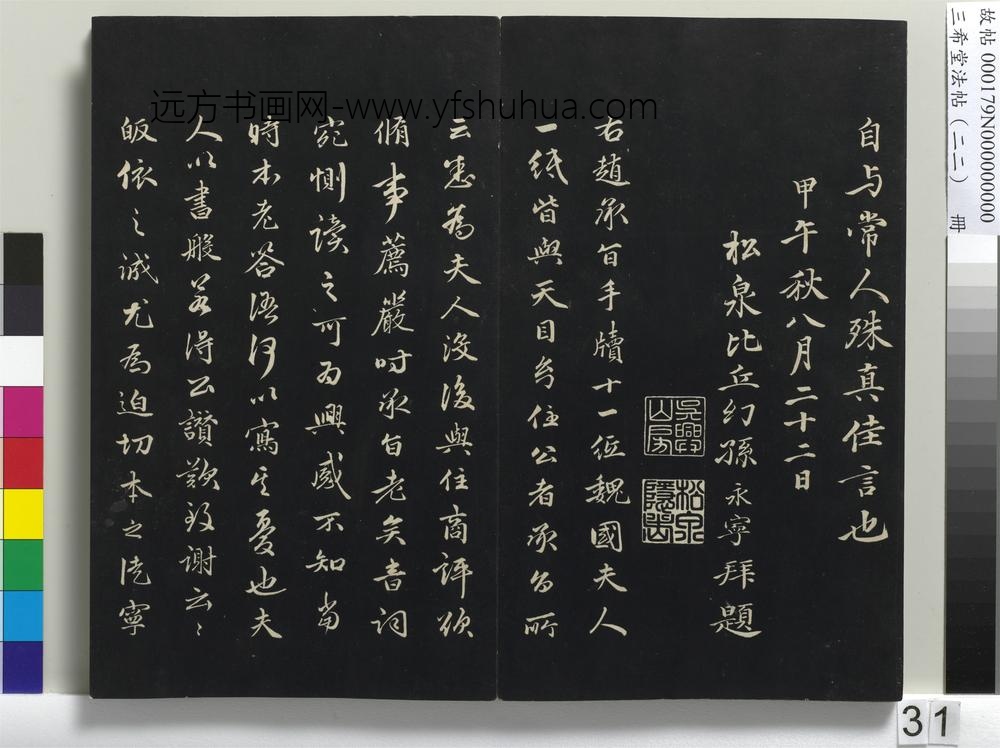 自与常人殊真佳言也
甲午秋八月二十二日
松泉比丘幻孫永寧拜題
吳興山房
松泉
右趙承旨手牘十一紙魏國夫人
一紙皆與天目幻住公者承旨所
云悉為夫人沒後與住商評欲
脩事薦嚴時承旨老矣音詞
宛惻讀之可為興感不知當
時本老答語何以寫其憂也夫
人以書般若得公讚歎致謝云〻
皈依之誠尤為迫切本之徒寧
远方书画网-www.yfshuhua.com
故帖 000179N000000000
三希堂法帖（二二） 冊
31